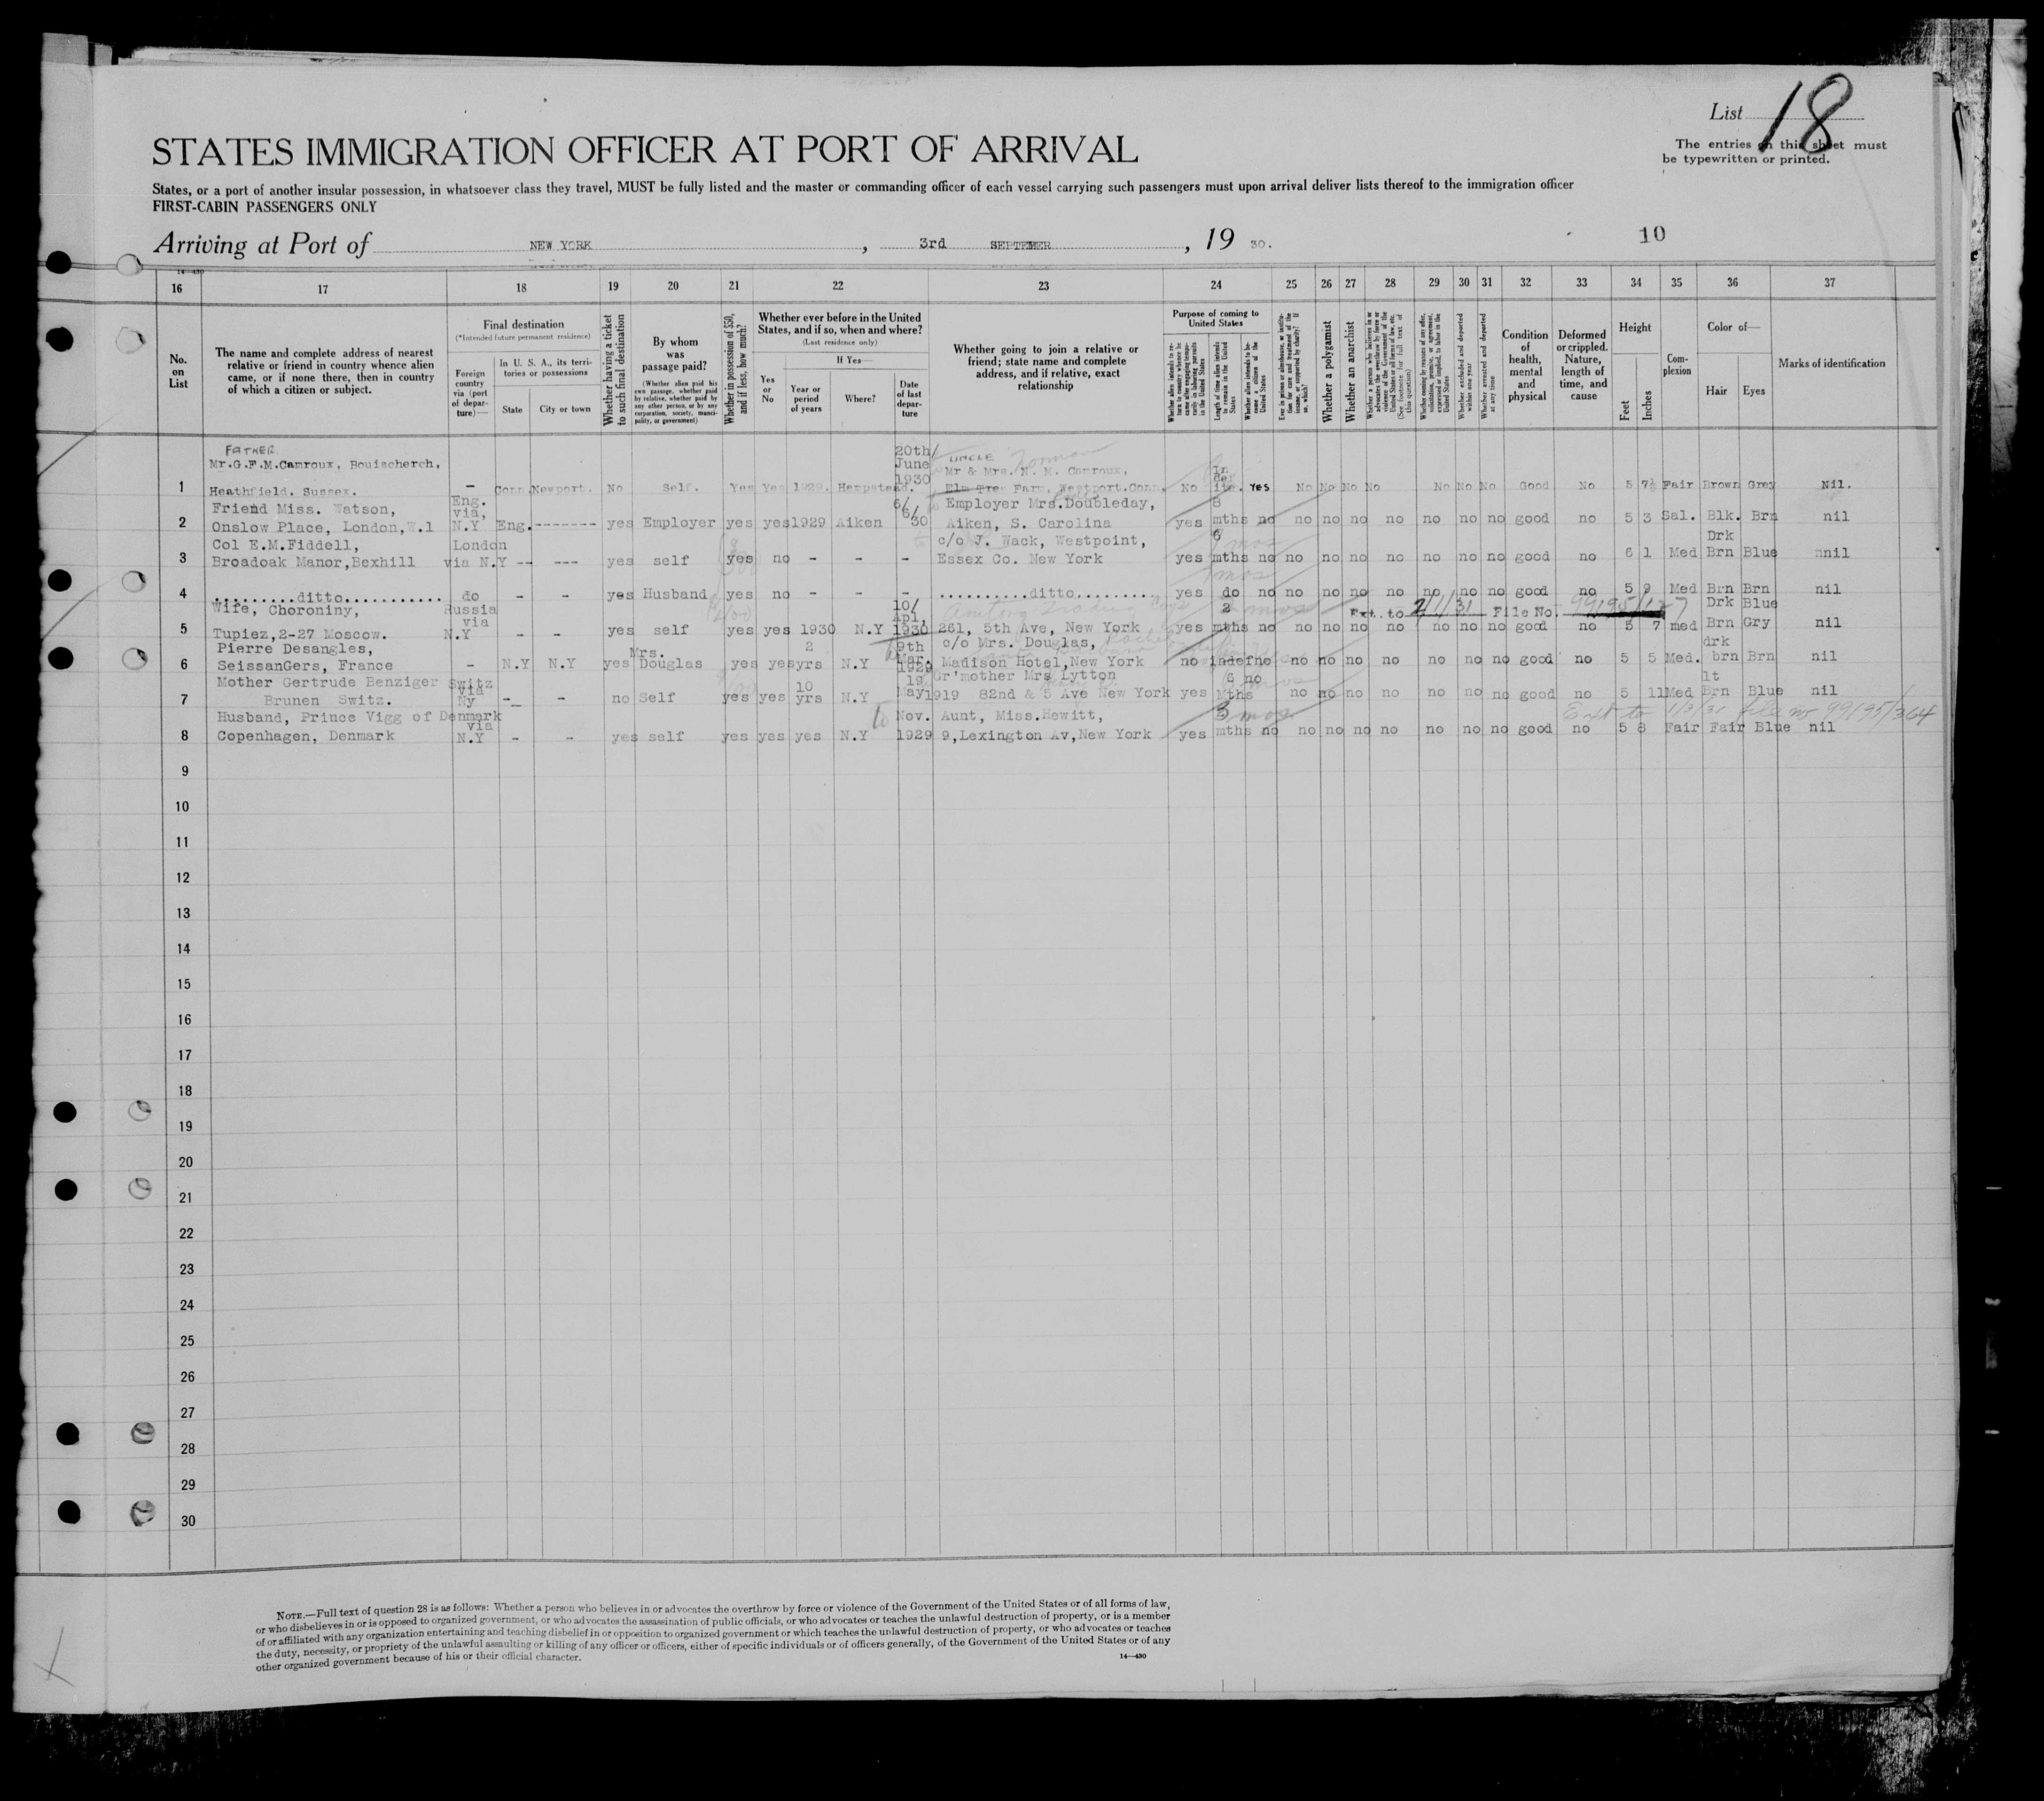 List 18
The entries on this sheet must
be typewritten or printed.
STATES IMMIGRATION OFFICER AT PORT OF ARRIVAL
States, or a port of another insular possession, in whatsoever class they travel, MUST be fully listed and the master or commanding officer of each vessel carrying such passengers must upon arrival deliver lists thereof to the immigration officer
FIRST-CABIN PASSENGERS ONLY
Arriving at Port of NEW YORK, 3rd SEPTEMER, 19 30.
10
14-430
16 17 18 19 20 21 22 23 24 25 26 27 28 29 30 31 32 33 34 35 36 37
No. on List
The name and complete address of nearest relative or friend in country whence alien came, or if none there, then in country of which a citizen or subject.
Final destination
(*Intended future permanent residence)
Foreign country via (port of departure)—
In U. S. A., its territories or possessions
State
City or town
Whether having a ticket to such final destination
By whom was passage paid?
(Whether alien paid his own passage, whether paid by relative, whether paid by any other person, or by any corporation, society, municipality, or government)
Whether in possession of $50, and if less, how much?
Whether ever before in the United States, and if so, when and where?
(Last residence only)
If Yes—
Yes or No
Year or period of years
Where?
Date of last departure
Whether going to join a relative or friend; state name and complete address, and if relative, exact relationship
Purpose of coming to United States
Whether alien intends to return to country whence he came after engaging temporarily in laboring pursuits in the United States
Length of time alien intends to remain in the United States
Whether alien intends to become a citizen of the United States
Ever in prison or almshouse, or institution for care and treatment of the insane, or supported by charity? If so, which?
Whether a polygamist
Whether an anarchist
Whether a person who believes in or advocates the overthrow by force or violence of the Government of the United States or all forms of law, etc. (See footnote for full text of this question)
Whether coming by reasons of any offer, solicitation, promise, or agreement, expressed or implied, to labor in the United States
Whether excluded and deported within one year
Whether arrested and deported at any time
Condition of health, mental and physical
Deformed or crippled. Nature, length of time, and cause
Height
Feet
Inches
Complexion
Color of—
Hair
Eyes
Marks of identification
FATHER 20th/ June 1930 UNCLE Norman
Mr.G.F.M.Camroux, Bouischerch, Mr & Mrs. N. M. Camroux,
1 Heathfield. Sussex. - Conn Newport. No Self. Yes Yes 1929. Hempstead. Elm Tree Farm, Westport.Conn. No In def ite. Yes No No No No No No No Good No 5 7½ Fair Brown Grey Nil.
Friend Miss. Watson, Eng. via, 6/ 6/ 30 Employer Mrs.Doubleday, 8
2 Onslow Place, London,W.1 N.Y Eng.------- yes Employer yes yes 1929 Aiken Aiken, S. Carolina yes mths no no no no no no no no good no 5 3 Sal. Blk. Brn nil
Col E.M.Fiddell, London c/o J. Wack, Westpoint, 6 Drk
3 Broadoak Manor,Bexhill via N.Y -- --- yes self yes no - - - Essex Co. New York yes mths no no no no no no no no good no 6 1 Med Brn Blue nnil
4 ..........ditto............ do - - yes Husband yes no - - - ..........ditto......... yes do no no no no no no no no good no 5 9 Med Brn Brn nil
Wife, Choroniny, Russia via 10/ Apl, Amtorg Trading 2 mos Ext. to 2/1/31 File No. 99195/127 Drk Blue
5 Tupiez,2-27 Moscow. N.Y - - yes self yes yes 1930 N.Y 1930 261, 5th Ave, New York yes mths no no no no no no no no good no 5 7 med Brn Gry nil
Pierre Desangles, Mrs. 2 9th Mar. c/o Mrs. Douglas, drk
6 SeissanGers, France - N.Y N.Y yes Douglas yes yes yrs N.Y 1929 Madison Hotel,New York no indef no no no no no no no no good no 5 5 Med. brn Brn nil
Mother Gertrude Benziger Switz via 10 19 Gr'mother Mrs Lytton 6 no lt
7 Brunen Switz. Ny - - no Self yes yes yrs N.Y May1919 82nd & 5 Ave New York yes Mths no no no no no no no good no 5 11 Med Brn Blue nil
Husband, Prince Vigg of Denmark via Nov. Aunt, Miss.Hewitt, 3 mos Ext to 1/3/31 file no 99195/364
8 Copenhagen, Denmark N.Y - - yes self yes yes yes N.Y 1929 9,Lexington Av,New York yes mths no no no no no no no no good no 5 8 Fair Fair Blue nil
9
10
11
12
13
14
15
16
17
18
19
20
21
22
23
24
25
26
27
28
29
30
NOTE.—Full text of question 28 is as follows: Whether a person who believes in or advocates the overthrow by force or violence of the Government of the United States or of all forms of law,
or who disbelieves in or is opposed to organized government, or who advocates the assassination of public officials, or who advocates or teaches the unlawful destruction of property, or is a member
of or affiliated with any organization entertaining and teaching disbelief in or opposition to organized government or which teaches the unlawful destruction of property, or who advocates or teaches
the duty, necessity, or propriety of the unlawful assaulting or killing of any officer or officers, either of specific individuals or of officers generally, of the Government of the United States or of any
other organized government because of his or their official character.
14-430